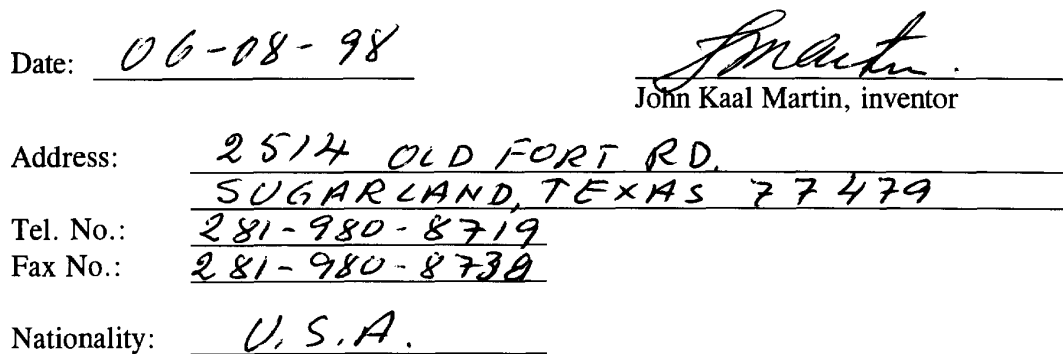 Date: 06-08-98
John Kaal Martin, inventor
Address: 2514 OLD FORT RD.
SUGARLAND, TEXAS 77479
Tel. No.: 281-980-8719
Fax No.: 281-980-
Nationality: U.S.A.